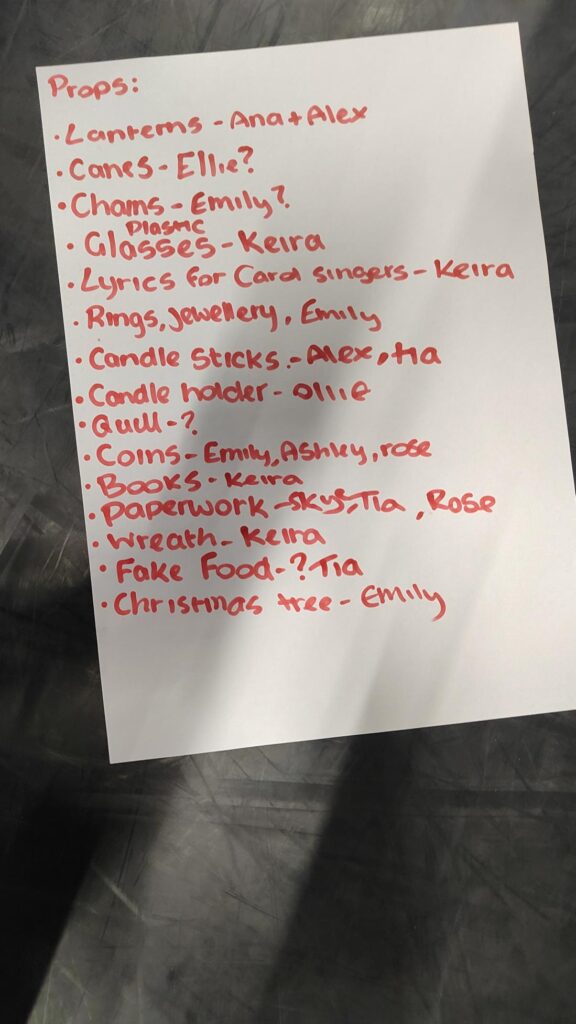 Props:
• Lanterns - Ana + Alex
• Canes - Ellie?
• Chains - Emily?
Plastic
• Glasses - Keira
• Lyrics for Carol singers - Keira
• Rings, jewellery, Emily
• Candle Sticks - Alex, tia
• Candle holder - Ollie
• Quill - ?
• Coins - Emily, Ashley, rose
• Books - Keira
• Paperwork - Skye, Tia, Rose
• Wreath - Keira
• Fake Food - ? Tia
• Christmas tree - Emily